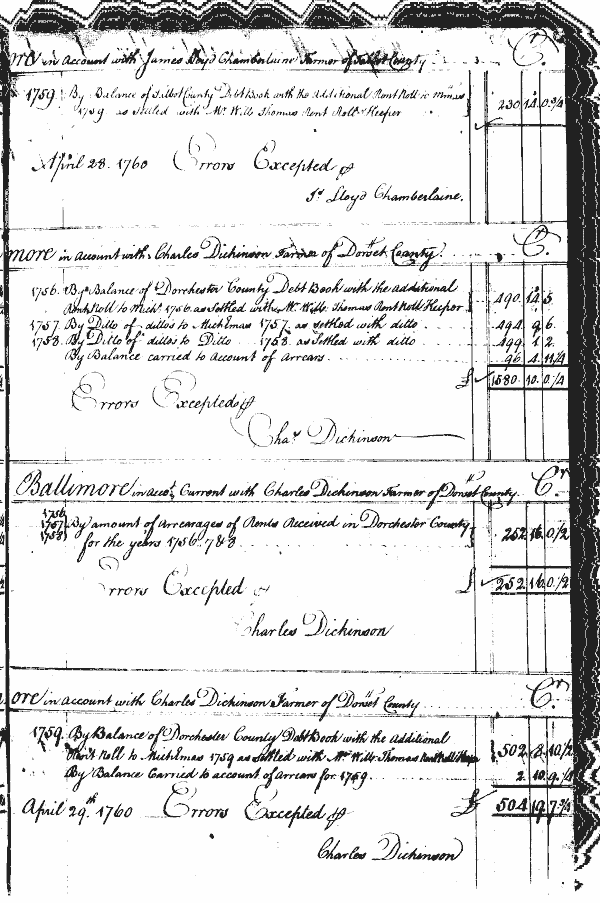 in Account with James Lloyd Chamberlaine Farmer of Talbot County Cr
1759 By Balance of Talbot County Debt Book with the additional Rent Roll to Mimas
1759 as settled with Mr. Wills Thomas Rent Roll Keeper 230 14 0 3/4
April 28. 1760 Errors Excepted
Js Lloyd Chamberlaine.
more in account with Charles Dickinson Farmer of Dorset County. Cr
1756. By Balance of Dorchester County Debt Book with the additional
Rent Roll to Michs 1756. as Settled with Mr. Wills. Thomas Rent Roll Keeper 490. 14. 5
1757. By Ditto of dittos to Michsmas 1757. as settled with ditto 494. 9 6.
1758. By Ditto of dittos to Ditto 1758. as Settled with ditto 499. 1 2.
By Balance carried to Account of Arrears. 96 4 11 1/4
£ 1580. 10. 0 1/4
Errors Excepted
Chas. Dickinson
Baltimore in accot. Current with Charles Dickinson Farmer of Dorset County Cr
1756
1757 By amount of Arrearages of Rents Received in Dorchester County
1758 for the years 1756. 7 & 8 252 16. 0 1/2
Errors Excepted £ 252 16 0 1/2
Charles Dickinson
ore in account with Charles Dickinson Farmer of Dorset County Cr
1759. By Balance of Dorchester County Debt Book with the Additional
Rent Roll to Michsmas 1759 as Settled with Mr. Wills Thomas Rent Roll Keeper 502 8 10 1/2
By Balance Carried to account of Arrears for 1759. 2. 10 9 1/4
April 29th 1760 Errors Excepted £ 504 19 7 3/4
Charles Dickinson